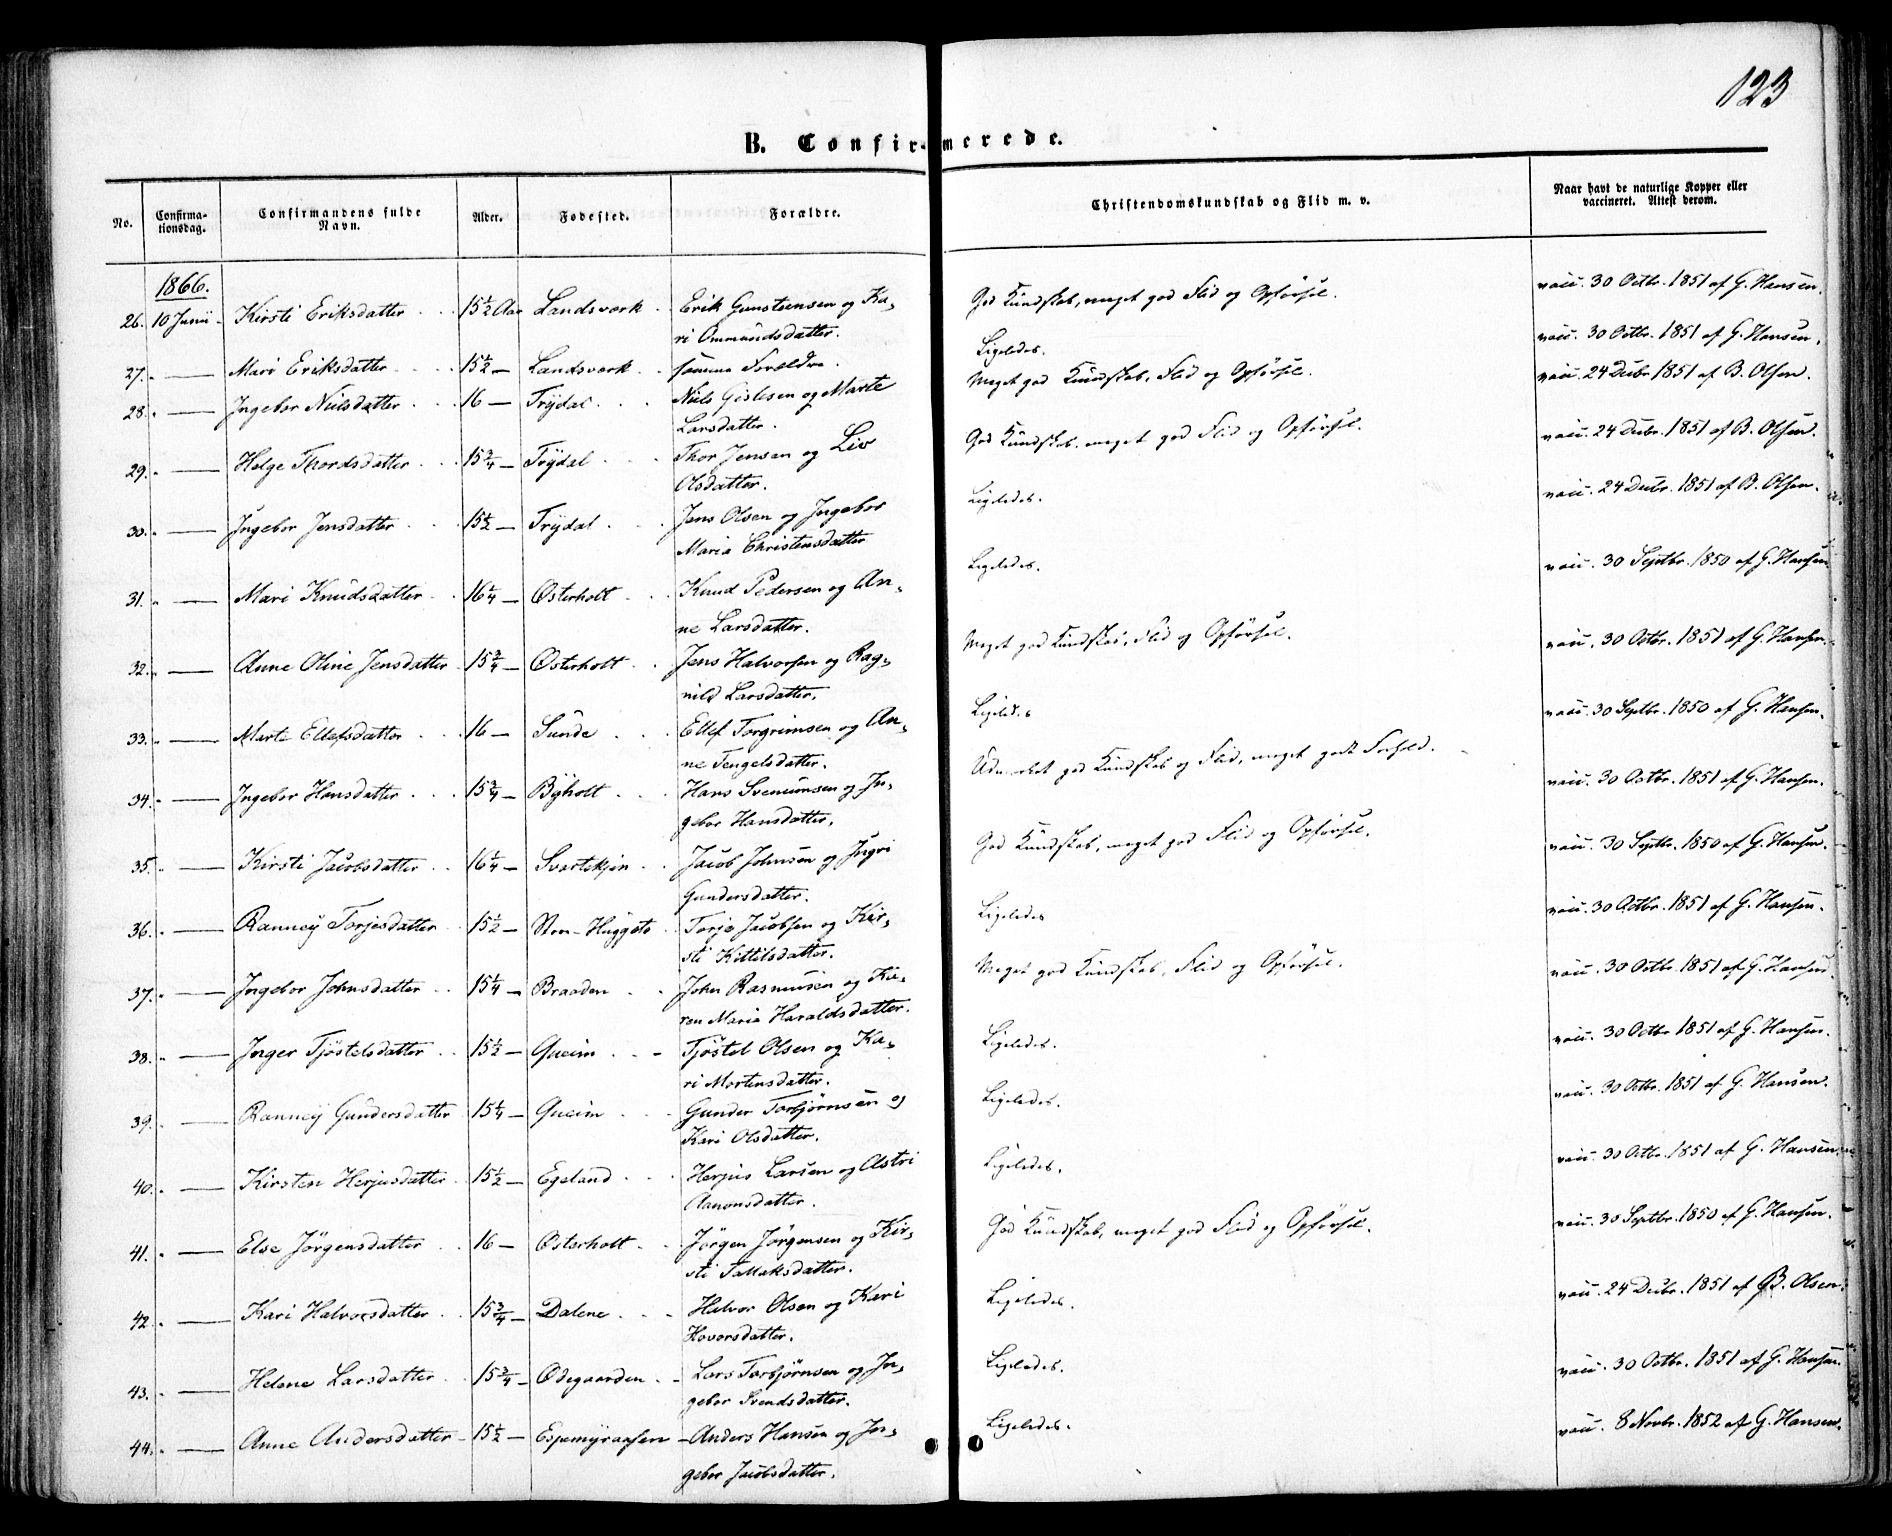 123
B. Confirmerede.
No. Confirma-tionsdag. Confirmandens fulde Navn. Alder. Fødested. Forældre. Christendomskundskab og Flid m. v. Naar havt de naturlige Kopper eller vaccineret. Attest derom.
1866.
26. 10 Junii Kirsti Eriksdatter 15½ Aar Landsverk Erik Gunsteensen og Ka- God Kundskab, meget god Flid og Opførsel. vacc. 30 Octbr. 1851 af G. Hansen.
ri Ommundsdatter.
27. " — Mari Eriksdatter 15½ — Landsverk samme Forældre. Ligeledes. vacc. 30 Octbr. 1851 af G. Hansen.
28. " — Ingebor Nielsdatter 16 — Trydal Niels Gislesen og Marte Meget god Kundskab, Flid og Opførsel. vacc. 24 Decbr. 1851 af B. Olsen.
Larsdatter.
29. " — Helge Thordsdatter 15¾ — Trydal Thor Jensen og Liv God Kundskab, meget god Flid og Opførsel. vacc. 24 Decbr. 1851 af B. Olsen.
Olsdatter.
30. " — Ingebor Jensdatter 15½ — Trydal Jens Olsen og Ingebor Ligeledes. vacc. 24 Decbr. 1851 af B. Olsen.
Maria Christensdatter
31. " — Mari Knudsdatter 16¼ — Østerholt Knud Pedersen og An- Ligeledes. vacc. 30 Septbr. 1850 af G. Hansen
ne Larsdatter.
32. " — Anne Oline Jensdatter 15¾ — Østerholt Jens Halvorsen og Rag- Meget god Kundskab, Flid og Opførsel. vacc. 30 Octbr. 1851 af G. Hansen.
nild Larsdatter.
33. " — Marte Ellefsdatter 16 — Sunde Ellef Torgrimsen og An- Ligeledes vacc. 30 Septbr. 1850 af G. Hansen.
ne Tengelsdatter.
34. " — Ingebor Hansdatter 15¾ — Byholt Hans Svenumsen og In- Udmærket god Kundskab og Flid, meget godt Forhold. vacc. 30 Octbr. 1851 af G. Hansen.
gebor Hansdatter.
35. " — Kirsti Jacobsdatter 16¼ — Svartekjen Jacob Johnsen og Ingri God Kundskab, meget god Flid og Opførsel. vacc. 30 Septbr. 1850 af G. Hansen.
Gundersdatter.
36. " — Ranney Torjesdatter 15½ — Huggeto Torje Jacobsen og Kir- Ligeledes vacc. 30 Octbr. 1851 af G. Hansen.
sti Kittilsdatter.
37. " — Ingebor Johnsdatter 15¼ — Braaden John Rasmusen og Ka- Meget god Kundskab, Flid og Opførsel. vacc. 30 Octbr. 1851 af G. Hansen.
ren Maria Haraldsdatter.
38. " — Inger Tjøstelsdatter 15½ — Queim Tjøstel Olsen og Ka- Ligeledes. vacc. 30 Octbr. 1851 af G. Hansen.
ri Mortensdatter.
39. " — Ranney Gundersdatter 15¼ — Queim Gunder Torbjørnsen og Ligeledes. vacc. 30 Octbr. 1851 af G. Hansen.
Kari Olsdatter.
40. " — Kirsten Herjusdatter 15½ — Egeland Herjus Larsen og Astri Ligeledes. vacc. 30 Octbr. 1851 af G. Hansen.
Aanonsdatter.
41. " — Else Jörgensdatter 16 — Osterholt Jörgen Jörgensen og Kir- God Kundskab, meget god Flid og Opførsel. vacc. 30 Septbr. 1850 af G. Hansen.
sti Tallaksdatter.
42. " — Kari Halvorsdatter 15¾ — Dalene Halvor Olsen og Kari Ligeledes. vacc. 24 Decbr. 1851 af B. Olsen.
Hovorsdatter.
43. " — Helene Larsdatter 15¾ — Ødegaarden Lars Torbjørnsen og In- Ligeledes. vacc. 30 Octbr. 1851 af G. Hansen.
gebor Svendsdatter.
44. " — Anne Andersdatter 15½ — Espemyraasen Anders Hansen og In- Ligeledes. vacc. 8 Novbr. 1852 af G. Hansen.
gebor Jacobsdatter.